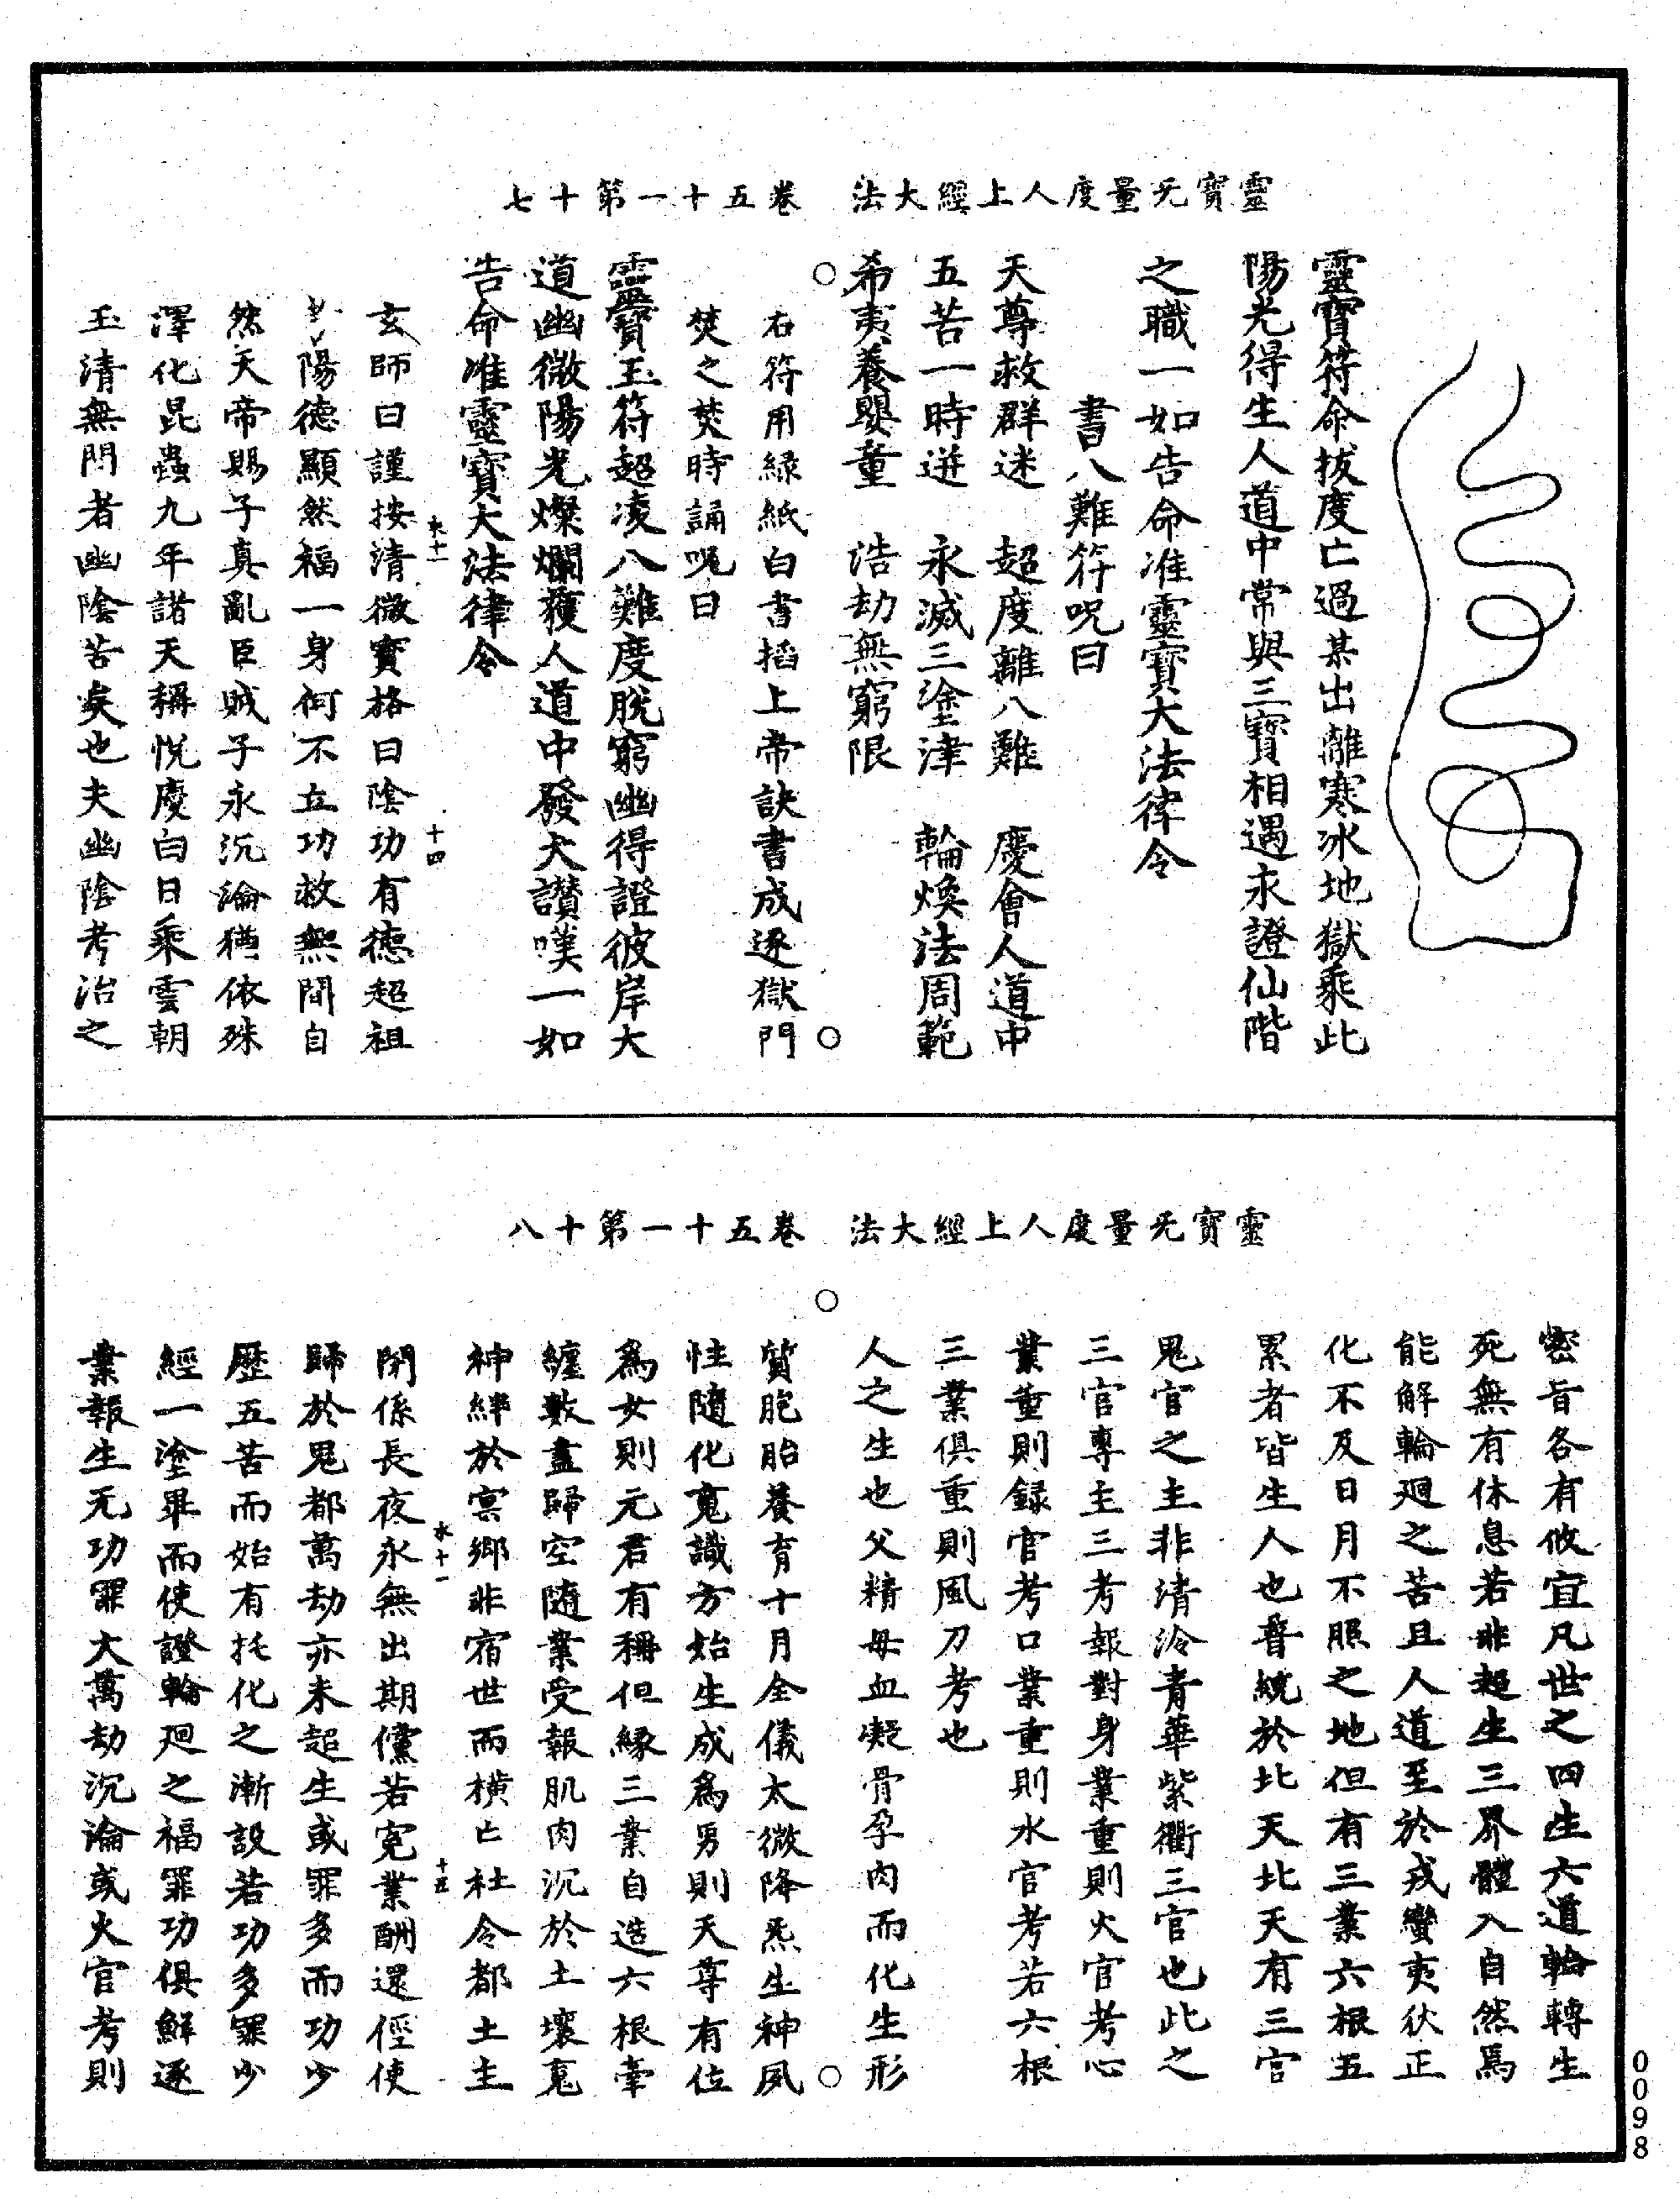 靈寶无量度人上經大法　卷五十一第十七
靈寶符命拔度亡過某出離寒冰地獄乘此
陽光得生人道中常與三寶相遇永證仙階
之職一如告命准靈寶大法律令
書八難符呪曰
天尊救群迷　超度離八難　慶會人道中
五苦一時迸　永滅三塗津　輪煥法周範
希夷養嬰童　浩劫無窮限
右符用緑紙白書搯上帝訣書成逐獄門
焚之焚時誦呪曰
靈寶玉符超凌八難度脫窮幽得證彼岸大
道幽微陽光燦爛獲人道中發大讃嘆一如
告命准靈寶大法律令
玄師曰謹按清微寶格曰陰功有德超祖
陽德顯然福一身何不立功救無間自
然天帝賜子真亂臣賊子永沉淪猶依殊
澤化昆蟲九年諸天稱悅慶白日乘雲朝
玉清無間者幽陰苦矣也夫幽陰考治之
氷十一　十四
靈寶无量度人上經大法　卷五十一第十八
密旨各有攸宜凡世之四生六道輪轉生
死無有休息若非超生三界體入自然焉
能解輪廻之苦且人道至於戎蠻夷狄正
化不及日月不照之地但有三業六根五
累者皆生人也普統於北天北天有三官
鬼官之主非清泠青華紫衢三官也此之
三官專主三考報對身業重則火官考心
業重則録官考口業重則水官考若六根
三業俱重則風刀考也
人之生也父精母血凝骨孕肉而化生形
質胞胎養育十月全儀太微降炁生神夙
性隨化䰟識方始生成爲男則天尊有位
爲女則元君有稱但緣三業自造六根牽
纏數盡歸空隨業受報肌肉沉於土壤䰟
神絆於㝠鄉非宿世而橫亡社令都土主
閉係長夜永無出期儻若寃業酬還徑使
歸於鬼都萬劫亦未超生或罪多而功少
歷五苦而始有托化之漸設若功多罪少
經一塗罪而使證輪廻之福罪功俱解逐
業報生无功罪大萬劫沉淪或火官考則
氷十一　十五
0098